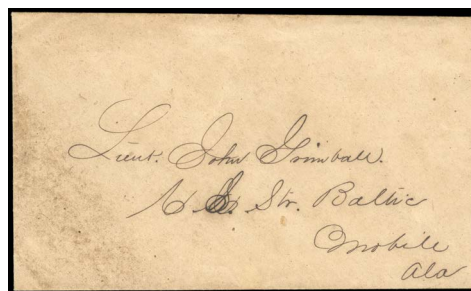 Lieut. John Grimball.
C. S. Str. Baltic
Mobile
Ala